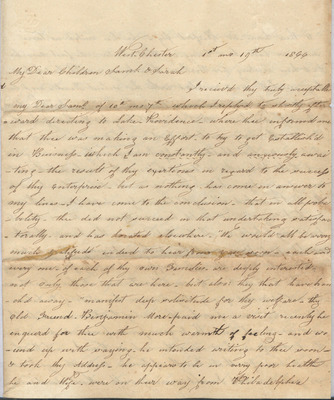 West Chester 1st mo 19th 1844
My Dear Children Samel & Sarah
I received thy truly acceptable
my Dear Samel of 10th mo 7th which I replied to shortly after
award directing to Lake Providence where thee informed me
that thee was making an Effort to try to get Established
in Business which I am constantly and anxiously awai
ting the result of thy exertions in regard to the success
of thy Enterprise but as nothing has come in answer to
my lines I have come to the conclusion that in all prob
ability thee did not succeed in that undertaking satisfac
torily and has located elsewhere We would all be very
much gratified indeed to hear from you soon each and
every one of each of thy own Families are deeply interested
not only those that are here but also they that have been
old away manifest deep solicitude for thy welfare thy
Old Friend Benjamin More paid me a visit recently he
enquired for thee with much warmth of feeling and wo
und up with saying he intended writing to thee soon
& took thy address he appears to be in very poor health
he and Wife were on their way from Philadelphia